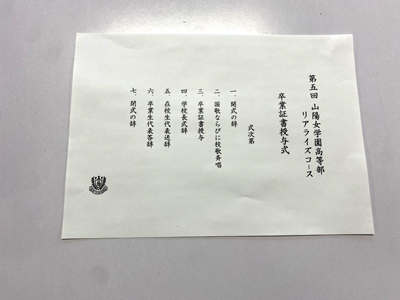 第五回 山陽女学園高等部
リアライズコース
卒業証書授与式
式次第
一、開式の辞
二、国歌ならびに校歌斉唱
三、卒業証書授与
四、学校長式辞
五、在校生代表送辞
六、卒業生代表答辞
七、閉式の辞